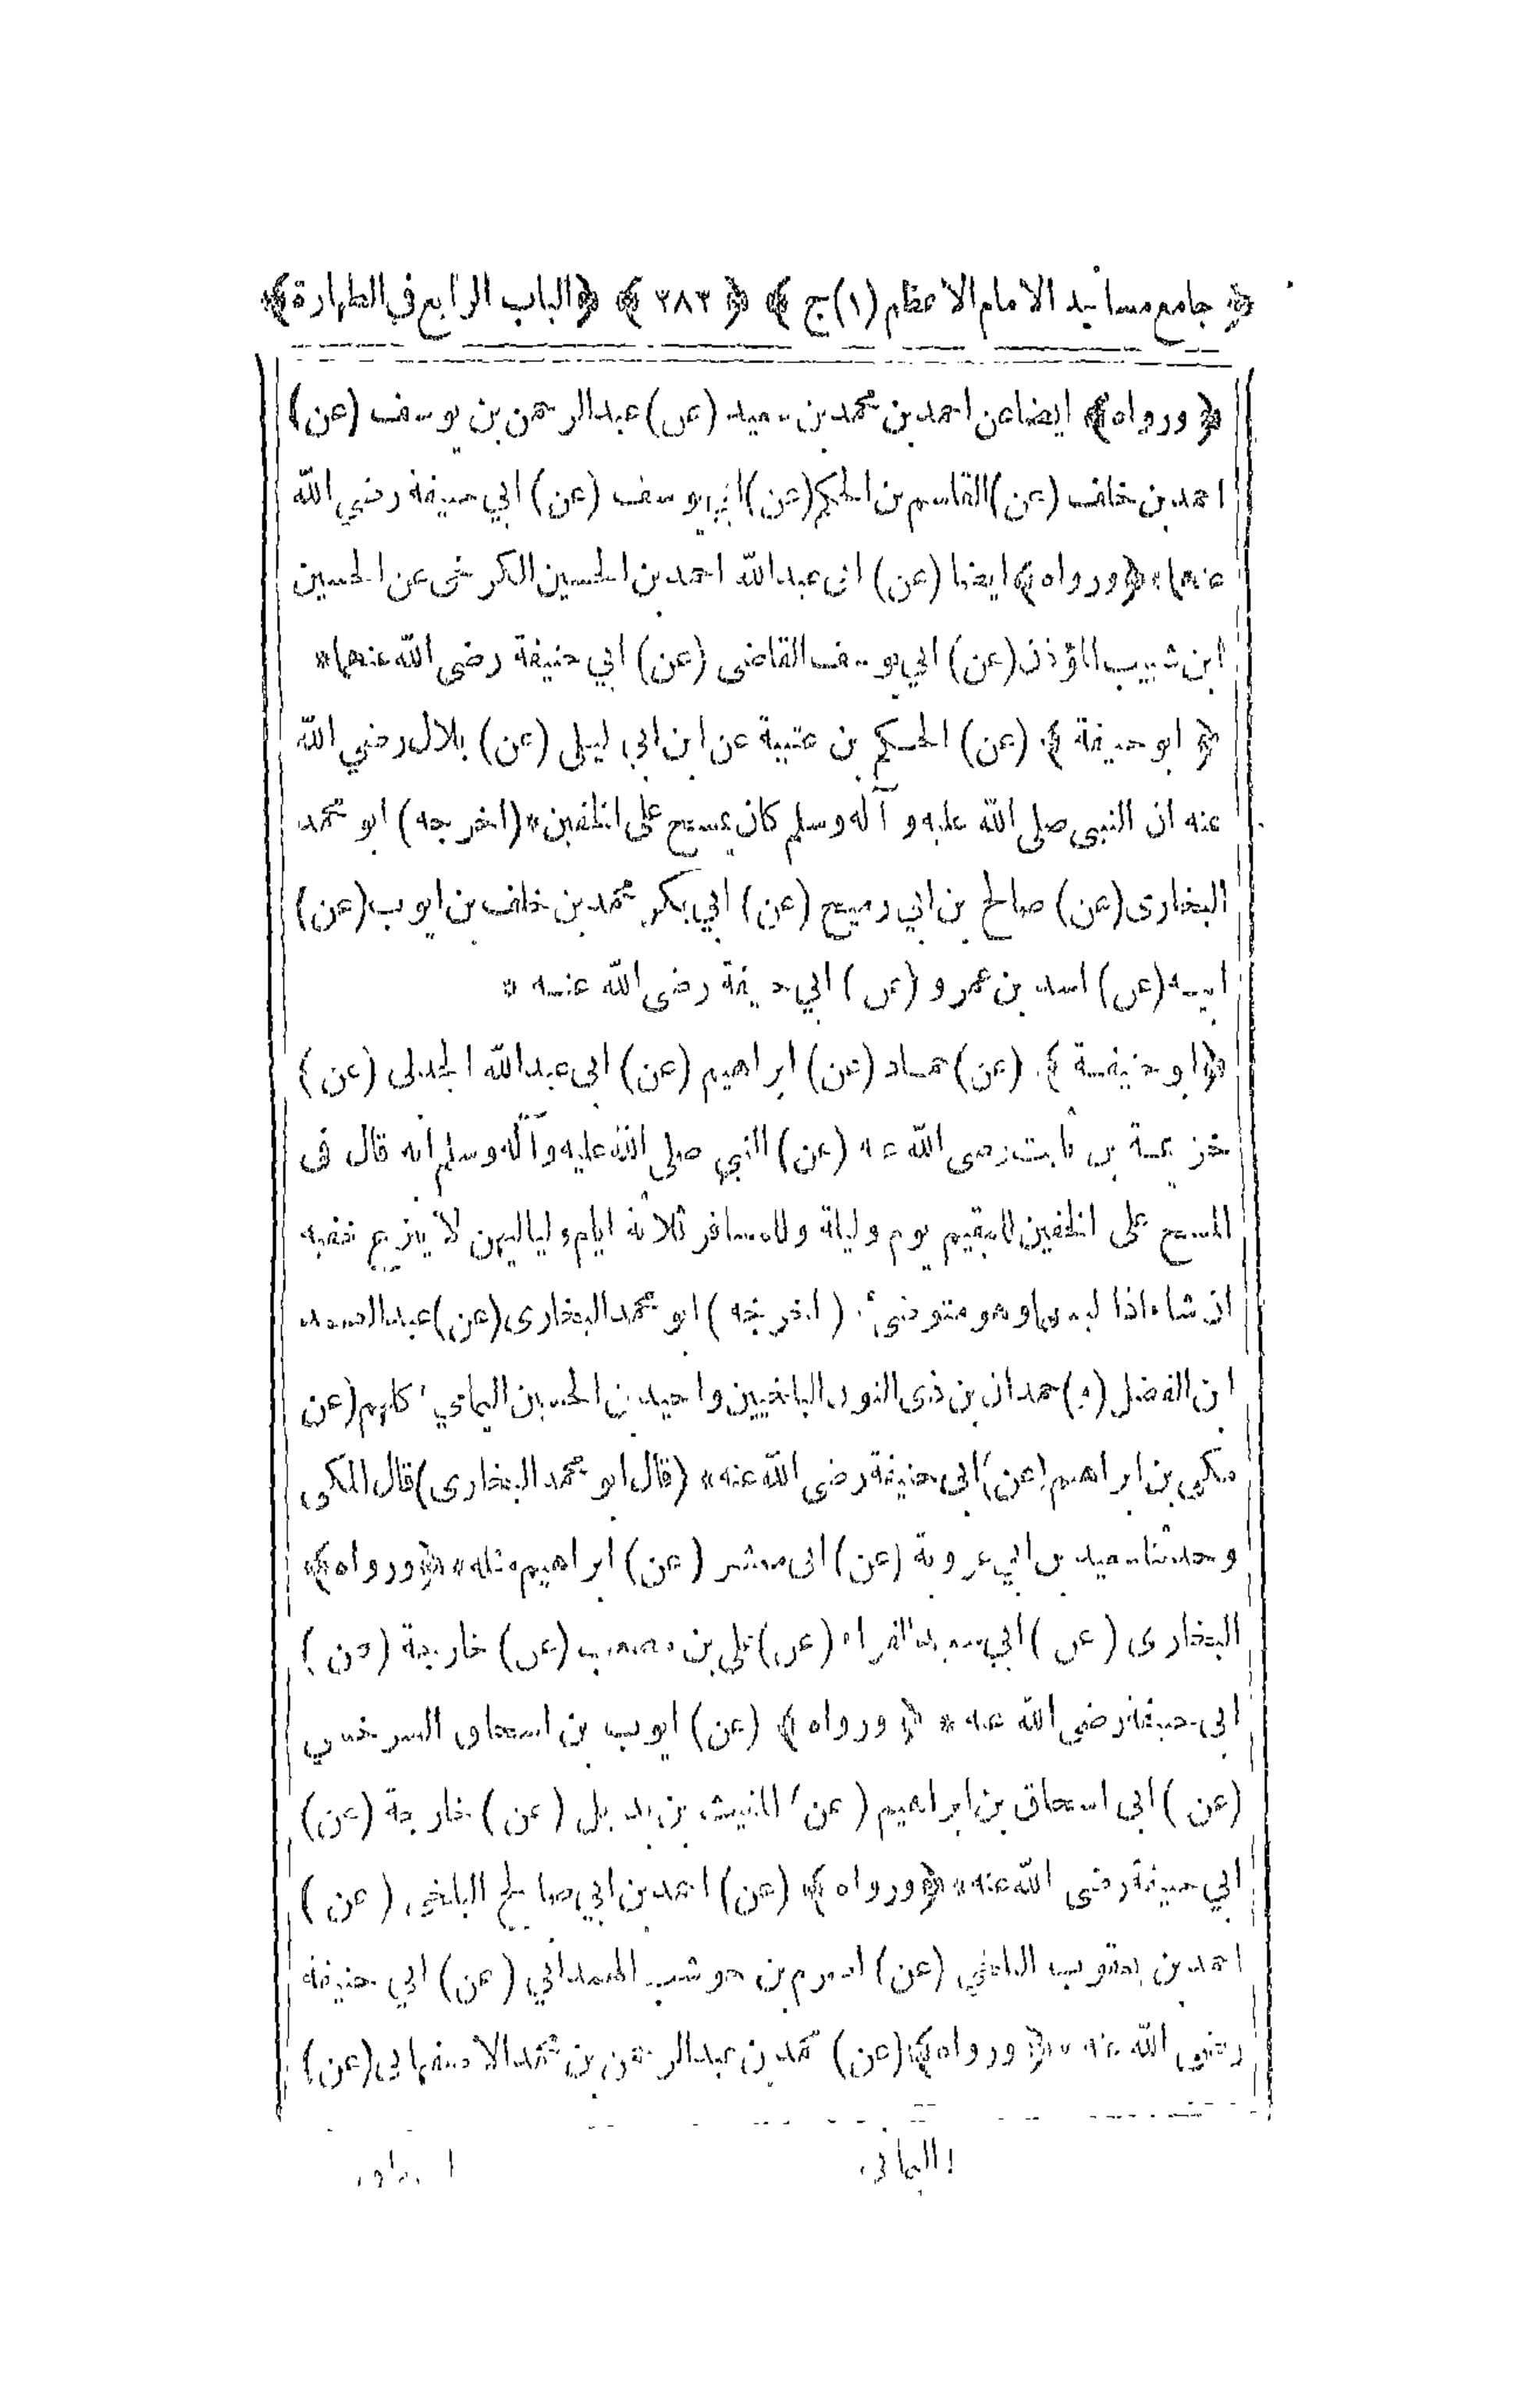 ﴿ جامع مسانيد الامام الاعظم (١) ج ﴾ ﴿ ٢٨٣ ﴾ ﴿ الباب الرابع فى الطهارة ﴾
﴿ ورواه ﴾ ايضا عن احمد بن محمد بن سعيد (عن) عبد الرحمن بن يوسف (عن)
احمد بن خلف (عن) القاسم بن الحكم (عن) ابي يوسف (عن) ابي حنيفة رضي الله
عنهما * ﴿ ورواه ﴾ ايضا (عن) ابى عبد الله احمد بن الحسين الكرخى عن الحسين
ابن شبيب المؤذن (عن) ابي يوسف القاضى (عن) ابي حنيفة رضى الله عنهما *
﴿ ابو حنيفة ﴾ (عن) الحكم بن عتيبة عن ابن ابى ليلى (عن) بلال رضي الله
عنه ان النبى صلى الله عليه و آله وسلم كان يمسح على الخفين * (اخرجه) ابو محمد
البخارى (عن) صالح بن ابي رميح (عن) ابي بكر محمد بن خلف بن ايوب (عن)
ابيه (عن) اسد بن عمرو (عن) ابي حنيفة رضى الله عنه *
﴿ ابو حنيفة ﴾ (عن) حماد (عن) ابراهيم (عن) ابى عبد الله الجدلى (عن)
خزيمة بن ثابت رضى الله عنه (عن) النبي صلى الله عليه وآله وسلم انه قال فى
المسح على الخفين للمقيم يوم وليلة وللمسافر ثلاثة ايام ولياليهن لا ينزع خفيه
ان شاء اذا لبسهما وهو متوضئ * (اخرجه) ابو محمد البخارى (عن) عبد الصمد
ابن الفضل (و) حمدان بن ذى النون البلخيين واحيد بن الحسين اليمامي ١ كلهم (عن
مكي بن ابراهيم (عن) ابى حنيفة رضى الله عنه * (قال ابو محمد البخارى) قال المكى
وحدثنا سعيد بن ابي عروبة (عن) ابى معشر (عن) ابراهيم مثله * ﴿ ورواه ﴾
البخارى (عن) ابي سعيد الفراء (عن) على بن مصعب (عن) خارجة (عن)
ابى حنيفة رضى الله عنه * ﴿ ورواه ﴾ (عن) ايوب بن اسحاق السرخسي
(عن) ابى اسحاق بن ابراهيم (عن) بن بديل (عن) خارجة (عن)
ابي حنيفة رضى الله عنه * ﴿ ورواه ﴾ (عن) احمد بن ابي صالح البلخى (عن)
احمد بن يعقوب البلخي (عن) اصرم بن حوشب الهمداني (عن) ابي حنيفة
رضى الله عنه * ﴿ ورواه ﴾ (عن) محمد بن عبد الرحمن بن محمد الاصفهانى (عن)